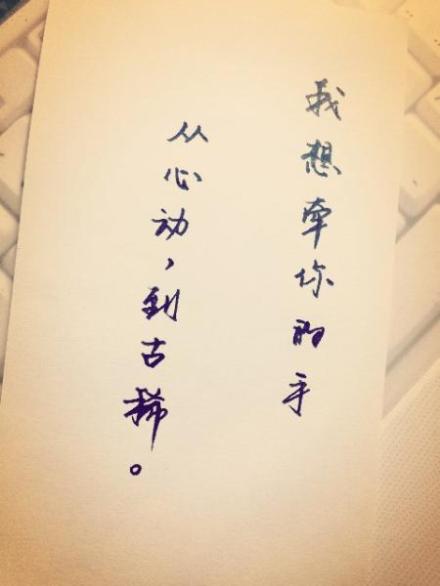 我想牵你的手
从心动，到古稀。